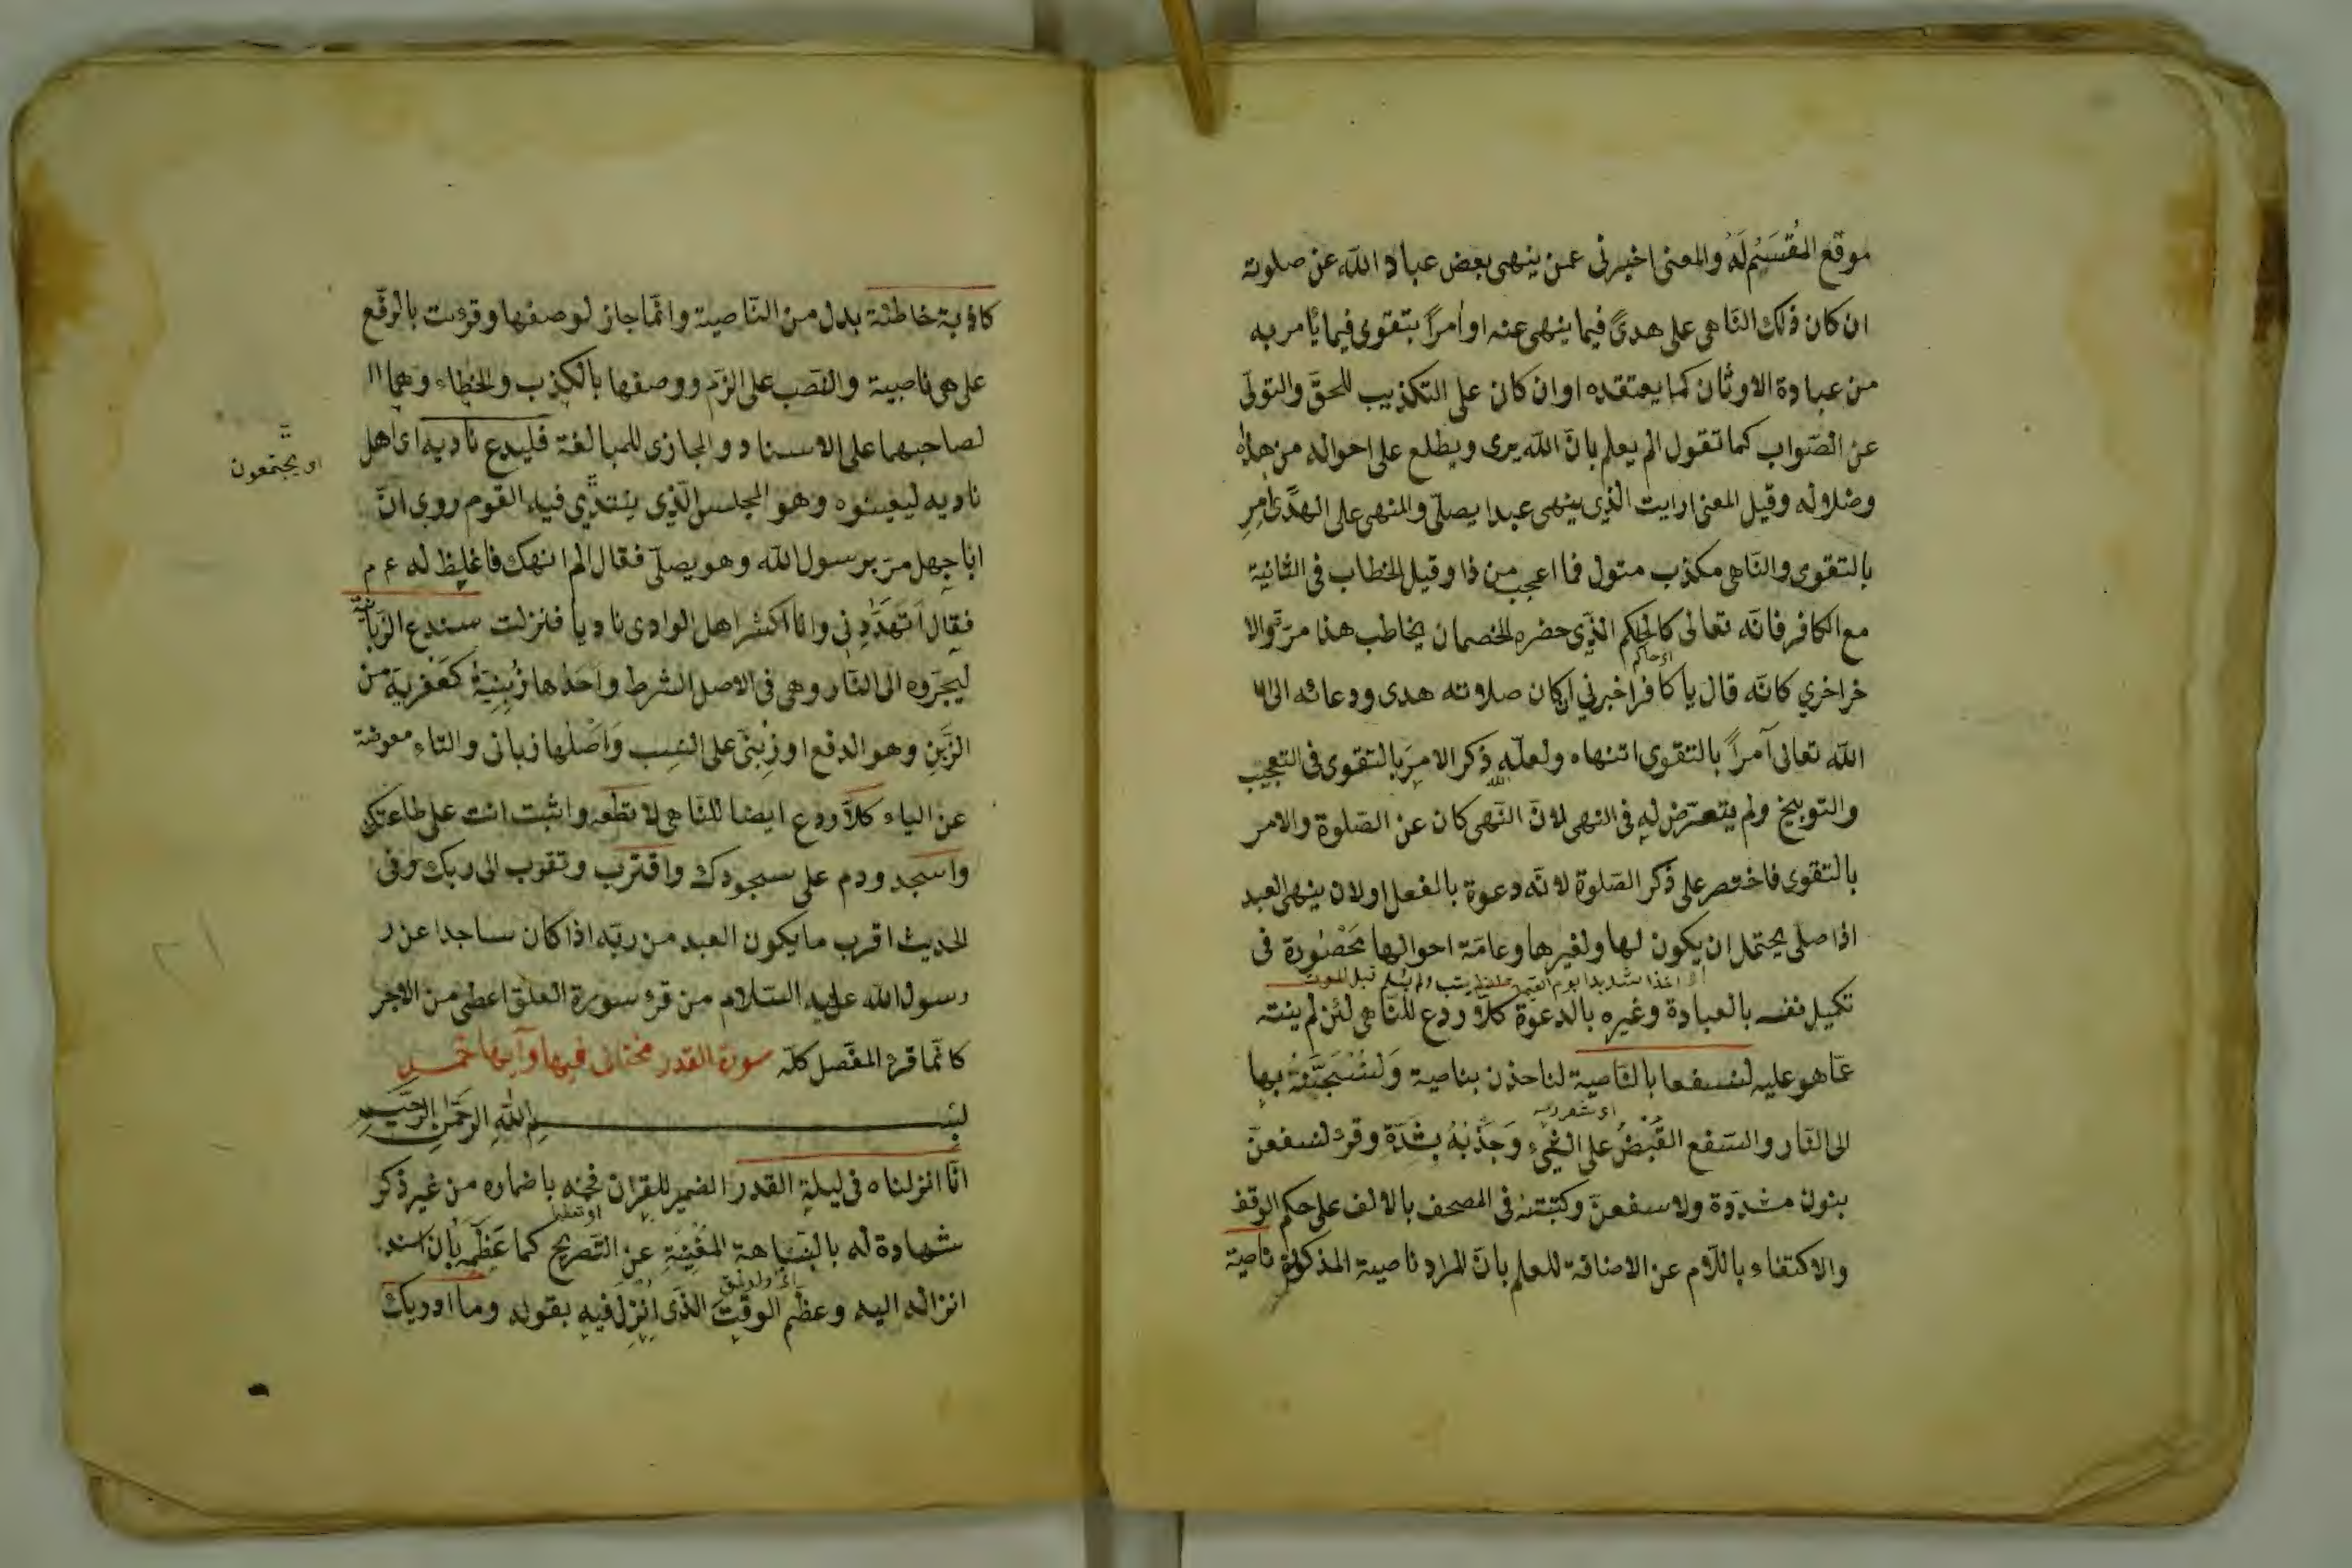 موقع المُقْسَمِ لَهُ والمعنى اخبرنى عمن ينهى بعض عباد الله عن صلوته
ان كان ذلك الناهى على هدىً فيما ينهى عنه او امراً بتقوى فيما يأمر به
من عبادة الاوثان كما يعتقده او ان كان على التكذيب للحقّ والتولّى
عن الصّواب كما تقول الم يعلم بانّ الله يرى ويطلع على احواله من هداه
وضلاله وقيل المعنى ارايت الذى ينهى عبدا يصلّى والمنهى على الهدى امر
بالتقوى والنّاهى مكذب متول فما اعجب من ذا وقيل الخطاب فى الثانية
مع الكافر فانّه تعالى كالحاكم الذى حضره الخصمان يخاطب هذا مرّة والا
خر اخري كانّه قال يا كافر اخبرني ان كان صلاوته هدى ودعائه الى
الله تعالى آمراً بالتقوى اتنهاه ولعلّه ذكر الامر بالتقوى فى التعجيب
والتوبيخ ولم يتعرّض له فى النهى لانّ النّهى كان عن الصّلوة والامر
بالتقوى فاختصر على ذكر الصّلوة لانّه دعوة بالفعل او لان ينهى العبد
اذا صلى يحتمل ان يكون لها ولغيرها وعامّة احوالها مَحْصُورة فى
تكميل نفسه بالعبادة وغيره بالدعوة كلّا ردع للنّاهى لئن لم ينته
عمّا هو عليه لنسفعا بالنّاصية لناخذن بناصية وَلنَسْحَبَنَّهُ بها
الى النّار والسّفع القَبْضُ على الشيء وَجَذْبُهُ بشدّة وقرئ لنسفعنّ
بنون مشدّدة ولاسفعنّ وكتبته فى المصحف بالالف على حكم الوقف
والاكتفاء باللّام عن الاضافة للعلم بانّ المراد ناصية المذكورة ناصية
كاذبة خاطئة بدل من النّاصية وانّما جاز لوصفها وقرئت بالرفع
على هى ناصية والنّصب على الذم ووصفها بالكذب والخطاء وهما
لصاحبهما على الاسناد والمجازى للمبالغة فليدع ناديه اى اهل
ناديه ليغيثوه وهو المجلس الّذى ينتدي فيه القوم روى انّ
او يجتمعون
ابا جهل مرّ برسول الله وهو يصلّى فقال الم انهك فاغلظ له ع م
فقال أتهدّدنى وانا اكثر اهل الوادى ناديا فنزلت سندع الزّبانية
ليجرّوه الى النّار وهى فى الاصل الشرط واحدها زِبْنِيَة كعفرية من
الزَّبْنِ وهو الدفع او زِبْنىّ على النسب وَاَصْلها زبانى والتاء معوضة
عن الياء كلّا ردع ايضا للنّاهى لا تطعه واثبت انت على طاعتك
واسجد ودم على سجودك واقترب وتقرب الى ربك وفى
الحديث اقرب ما يكون العبد من ربّه اذا كان ساجدا عن ر
رسول الله عليه السّلام من قرء سورة العلق اعطى من الاجر
كانّما قرء المفّصل كلّه سورة القدر مختلف فيها وآيها خمس
بسم الله الرحمن الرحيم
انّا انزلناه فى ليلة القدر الضمير للقران فخمه باضماره من غير ذكر
شهادة له بالنّباهة المُغْنِيَةِ عن التّصريح كما عَظّمَه بان اسند
انزاله اليه وعظّم الوقت الذى اُنْزِلَ فيه بقوله وما ادريك